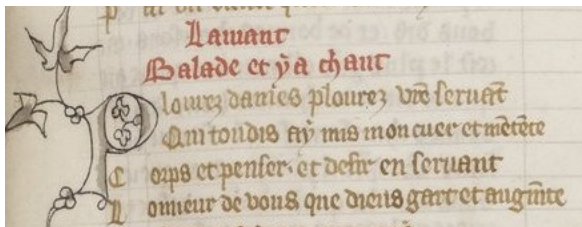 Lamant
Balade et ÿ a chant
Plourez dames plourez vr̄e seruāt
Qui toudis aÿ mis mon cuer et mētēte
Corps et penser. et desir en seruant
Lonneur de vous que dieus gart et augm̄te